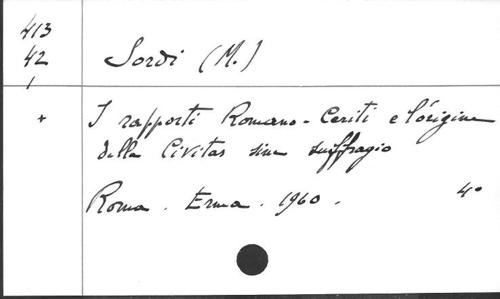 413
42
1
Sordi (M.)
+ I rapporti Romano-Ceriti e l'origine
della Civitas sine suffragio
Roma. Erma. 1960. 4°